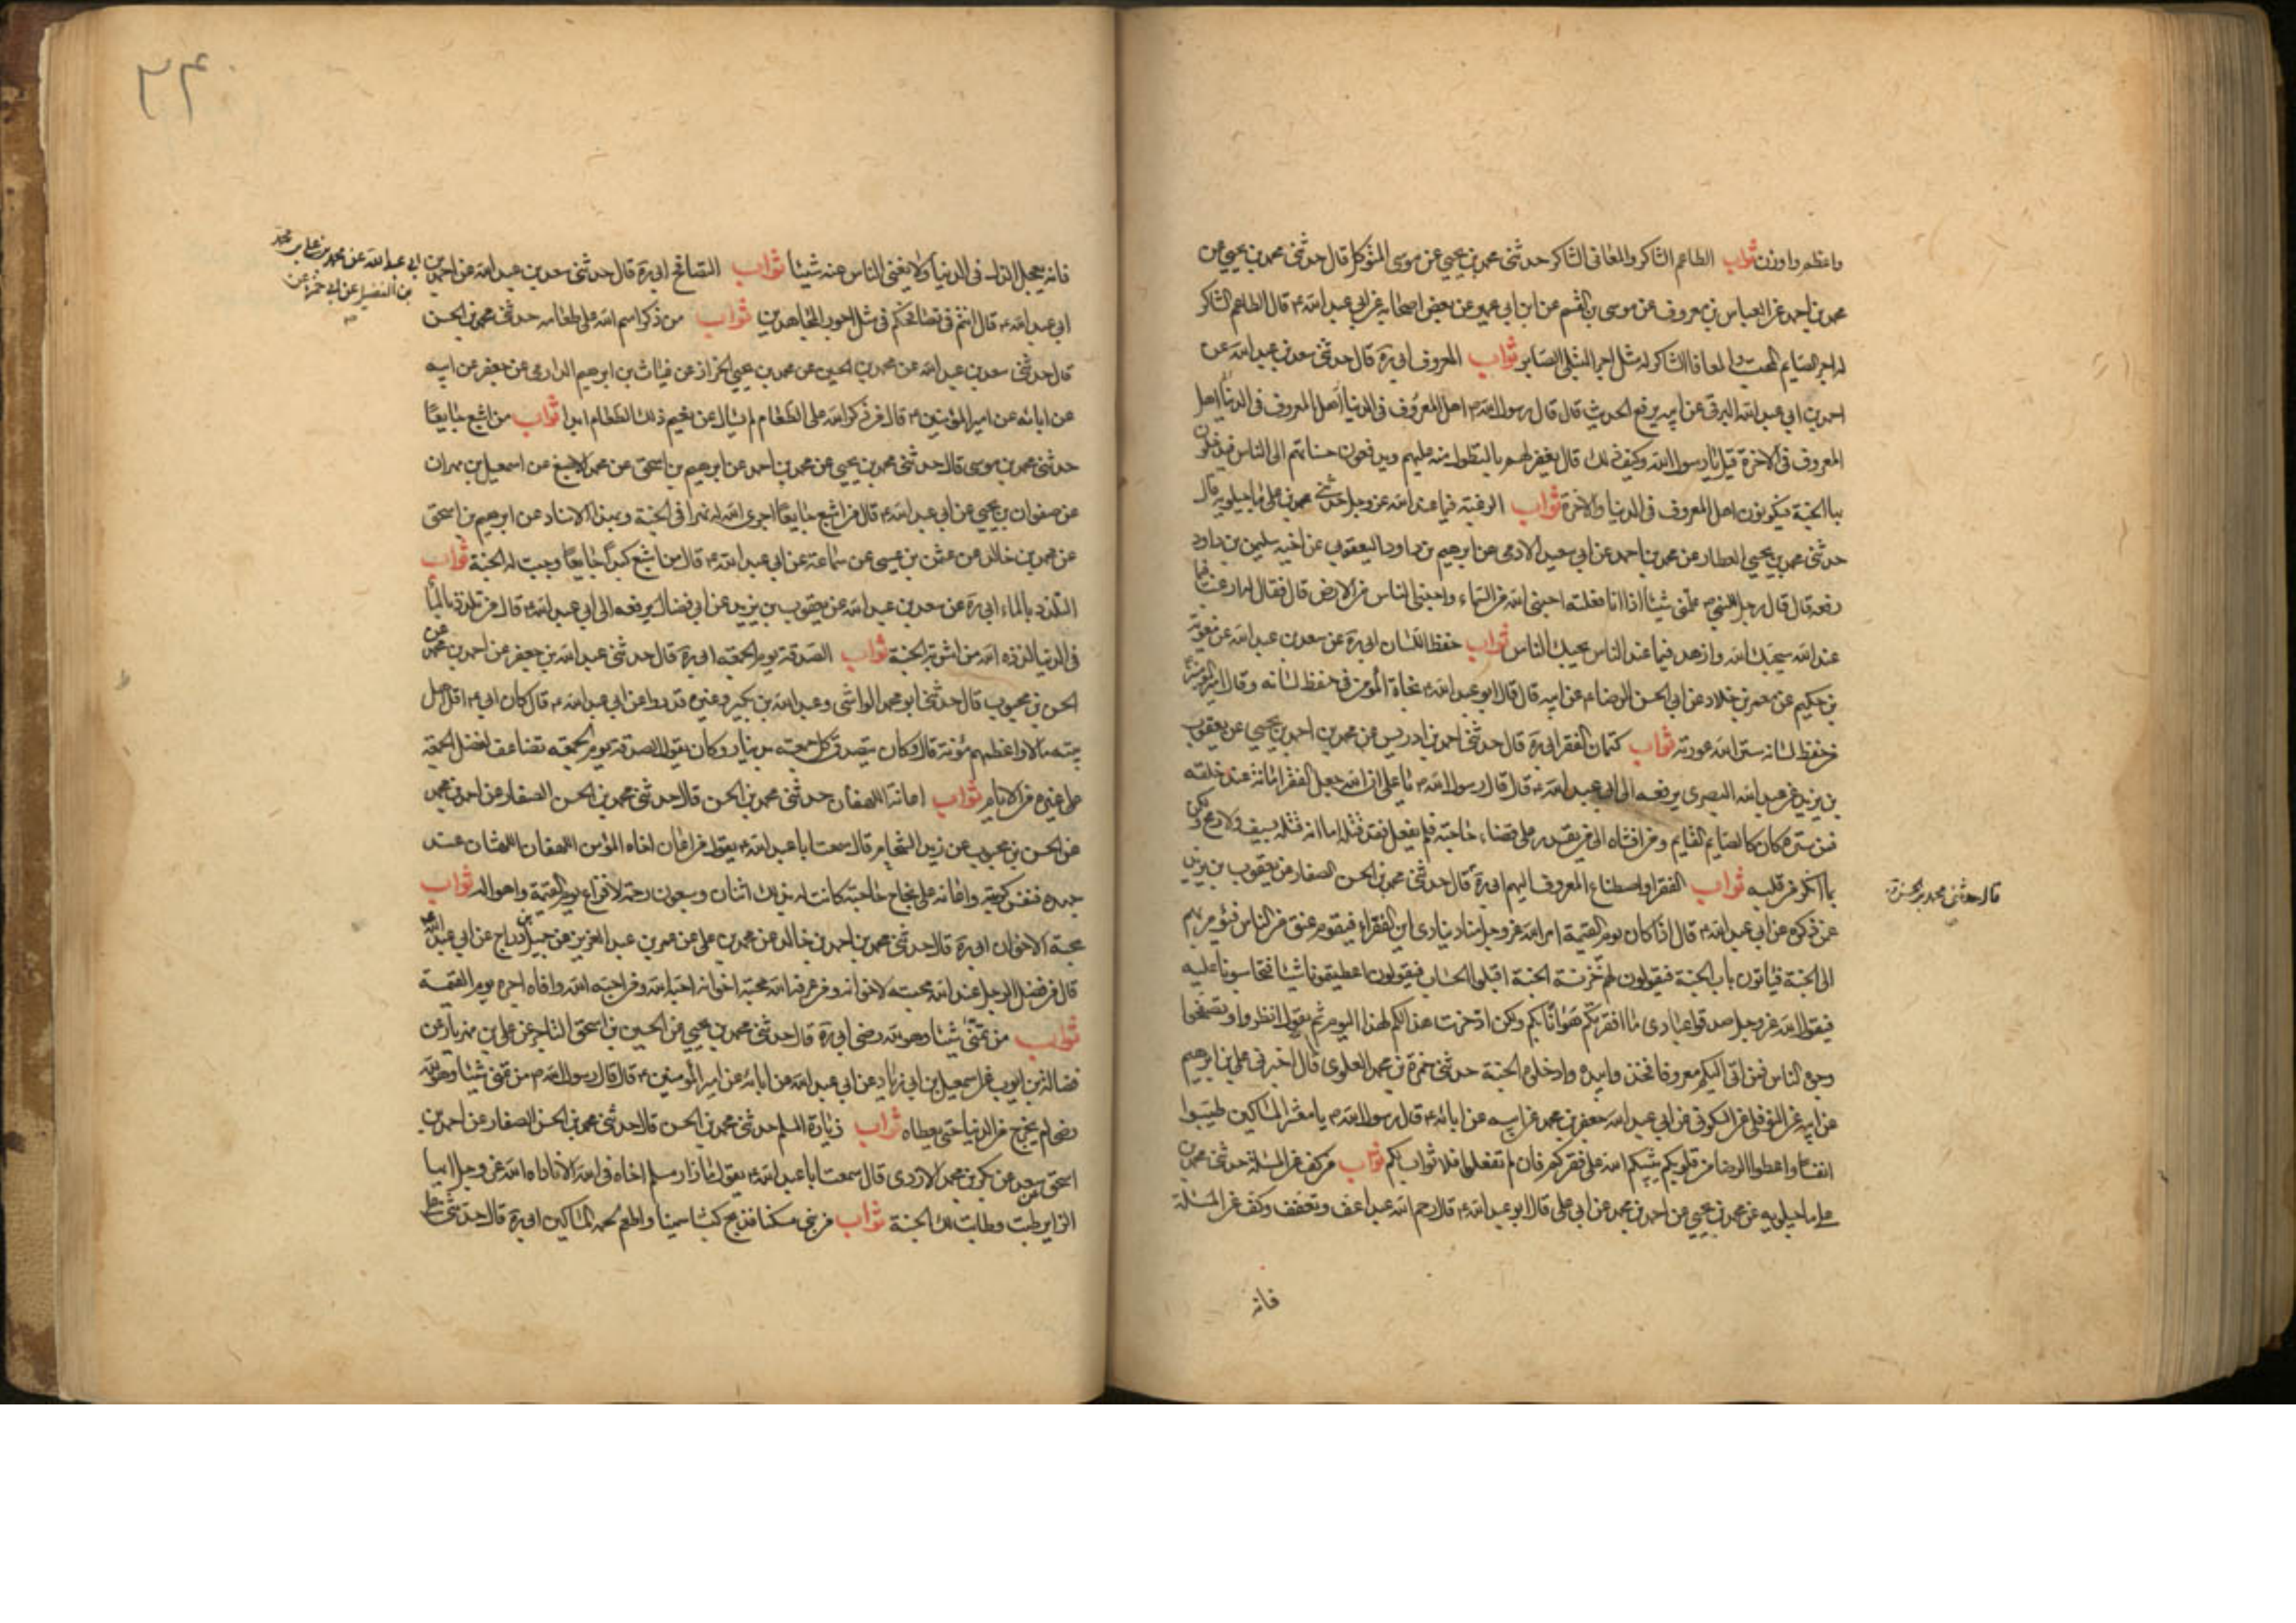 واعظم واوزن ثواب الطاعم الشاكر والمعافى الشاكر حدثنى محمد بن يحيى عن موسى المتوكل قال حدثنى محمد بن يحيى عن
محمد بن احمد عن العباس بن معروف عن موسى بن القسم عن ابن ابى عمير عن بعض اصحابه عن ابى عبد الله ع قال الطاعم الشاكر
له اجر الصايم المحتسب والمعافا الشاكر له مثل اجر المبتلى الصابر ثواب المعروف ابى ره قال حدثنى سعد بن عبد الله عن
احمد بن ابى عبد الله البرقى عن ابيه يرفع الحديث قال قال رسول الله ص اهل المعروف فى الدنيا اهل المعروف فى الدنيا اهل
المعروف فى الاخرة قيل يا رسول الله وكيف ذلك قال يغفر لهم بالتطول منه عليهم ويدفعون حسناتهم الى الناس فيدخلون
بها الجنة فيكونون اهل المعروف فى الدنيا والاخرة ثواب الرغبة فيما عند الله عز وجل حدثنى محمد بن على ماجيلويه قال
حدثنى محمد بن يحيى العطار عن محمد بن احمد عن ابى سعيد الادمى عن ابرهيم بن داود اليعقوبى عن اخيه سليمن بن داود
رفعه قال قال رجل للنبى ص علمنى شيئا اذا انا فعلته احبنى الله من السماء واحبنى الناس من الارض قال فقال له ارغب فيما
عند الله يحبك الله وازهد فيما عند الناس يحبك الناس ثواب حفظ اللسان ابى ره عن سعد بن عبد الله عن معوية
بن حكيم عن معمر بن خلاد عن ابى الحسن الرضا ع عن ابيه قال قال ابو عبد الله ع نجاة المؤمن فى حفظ لسانه وقال امير المؤمنين
من حفظ لسانه ستر الله عورته ثواب كتمان الفقر ابى ره قال حدثنى احمد بن ادريس عن محمد بن احمد بن يحيى عن يعقوب
بن يزيد عن عبد الله البصرى يرفعه الى ابى عبد الله ع قال قال رسول الله ص يا على ان الله جعل الفقر امانة عند خلقه
فمن ستره كان كالصايم القايم ومن افشاه الى من يقدر على قضاء حاجته فلم يفعل فقد قتله اما انه قتله بسيف ولا رمح ولكن
بما انكر من قلبه ثواب الفقرا واصطناع المعروف اليهم ابى ره قال حدثنى محمد بن الحسن الصفار عن يعقوب بن يزيد
قال حدثنى محمد بن الحسن
عمن ذكره عن ابى عبد الله ع قال اذا كان يوم القيمة امر الله عز وجل مناد ينادى اين الفقراء فيقوم عنق من الناس فيؤمر بهم
الى الجنة فياتون باب الجنة فيقولون لهم خزنة الجنة اقبل الحساب فيقولون اعطيتمونا شيئا فتحاسبونا عليه
فيقول الله عز وجل صدقوا عبادى ما افقرتكم هوانا بكم ولكن ادخرت هذا لكم لهذا اليوم ثم يقول انظروا وتصفحوا
وجوه الناس فمن اتى اليكم معروفا فخذوا بيده وادخلوه الجنة حدثنى حمزة بن محمد العلوى قال اخبرنى على بن ابرهيم
عن ابيه عن النوفلى عن السكونى عن ابى عبد الله جعفر بن محمد عن ابيه عن ابائه ع قال رسول الله ص يا معشر المساكين طيبوا
انفسا واعطوا الرضا من قلوبكم يثيبكم الله على فقركم فان لم تفعلوا فلا ثواب لكم ثواب من كف عن المسئلة حدثنى محمد بن
على ماجيلويه عن محمد بن يحيى عن احمد بن محمد عن ابى على قال ابو عبد الله ع قال رحم الله عبدا عف وتعفف وكف عن المسئلة
فانه
٢٤
فانه يعجل الذل فى الدنيا ولا يغنى الناس عنه شيئا ثواب التصافح ابى ره قال حدثنى سعد بن عبد الله عن احمد بن
ابى عبد الله عن محمد بن على بن محمد
بن الفضيل عن ابى حمزة عن
ابى عبد الله ع قال انتم فى تصافحكم فى مثل اجور المجاهدين ثواب من ذكر اسم الله على طعامه حدثنى محمد بن الحسن
قال حدثنى سعد بن عبد الله عن محمد بن الحسين عن محمد بن يحيى الخزاز عن غياث بن ابرهيم الدارمى عن جعفر عن ابيه
عن ابائه عن امير المؤمنين ع قال من ذكر الله على الطعام لم يسال عن نعيم ذلك الطعام ابدا ثواب من اشبع جايعا
حدثنى محمد بن موسى قال حدثنى محمد بن يحيى عن محمد بن احمد عن ابرهيم بن اسحق عن محمد الاصبغ عن اسمعيل بن مهران
عن صفوان بن يحيى عن ابى عبد الله ع قال من اشبع جايعا اجرى الله له نهرا فى الجنة وبهذا الاسناد عن ابرهيم بن اسحق
عن محمد بن خالد عن عثمن بن عيسى عن سماعة عن ابى عبد الله ع قال من اشبع كبدا جايعا وجبت له الجنة ثواب
التلذذ بالماء ابى ره عن سعد بن عبد الله عن يعقوب بن يزيد عن ابن فضال يرفعه الى ابى عبد الله ع قال من تلذذ بالماء
فى الدنيا لذذه الله من اشربة الجنة ثواب الصدقة يوم الجمعة ابى ره قال حدثنى عبد الله بن جعفر عن احمد بن محمد عن
الحسن بن محبوب قال حدثنى ابو محمد الوابشى وعبد الله بن بكير وغيره قد رووا عن ابى عبد الله ع قال كان ابى ع اقل اهل
بيته مالا واعظمهم مؤنة قال وكان يتصدق كل جمعة بدينار وكان يقول الصدقة يوم الجمعه تضاعف لفضل الجمعة
على غيره من الايام ثواب اغاثة اللهفان حدثنى محمد بن الحسن قال حدثنى محمد بن الحسن الصفار عن احمد بن محمد
عن الحسن بن محبوب عن زيد الشحام قال سمعت ابا عبد الله ع يقول من اغاث اخاه المؤمن اللهفان اللهثان عند
جهده فنفس كربته واعانه على نجاح حاجته كانت له بذلك اثنان وسبعون رحمة لافزاع يوم القيمة واهواله ثواب
محبة الاخوان ابى ره قال حدثنى محمد بن احمد بن خالد عن محمد بن على عن عمر بن عبد العزيز عن جميل بن دراج عن ابى عبد الله ع
قال من فضل الرجل عند الله محبته لاخوانه ومن عرفه الله محبة اخوانه احبه الله ومن احبه الله وافاه اجره يوم القيمة
ثواب من تمنى شيئا وهو لله رضى ابى ره قال حدثنى محمد بن يحيى عن الحسين بن اسحق التاجر عن على بن مهزيار عن
فضالة بن ايوب عن اسمعيل بن ابى زياد عن ابى عبد الله عن ابائه عن امير المؤمنين ع قال قال رسول الله ص من تمنى شيئا وهو لله
رضى لم يخرج من الدنيا حتى يعطاه ثواب زيارة المسلم حدثنى محمد بن الحسن قال حدثنى محمد بن الحسن الصفار عن احمد بن
اسحق بن سعد عن بكر بن محمد الازدى قال سمعت ابا عبد الله ع يقول ما زار مسلم اخاه فى الله الا ناداه الله عز وجل ايها
الزاير طبت وطابت لك الجنة ثواب من بنى مسكنا فذبح كبشا سمينا واطعم لحمه المساكين ابى ره قال حدثنى